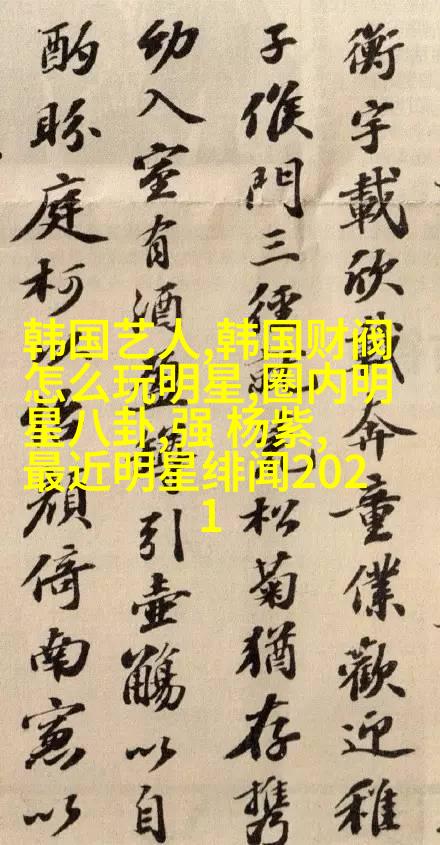 韩国艺人,韩国财阀
怎么玩明星,圈内明
星八卦,强 杨紫,
最近明星绯闻202
1
衡宇載欣載奔童僕歡迎稚
子候門三徑松菊猶存携
幼入室有酒盈樽引壺觴以自
酌眄庭柯顔倚南窓以